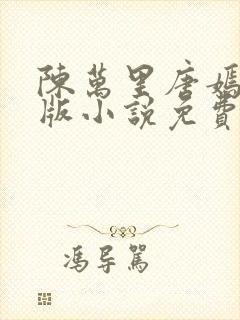 陳萬里唐嫣
版小說免費
馮导駡